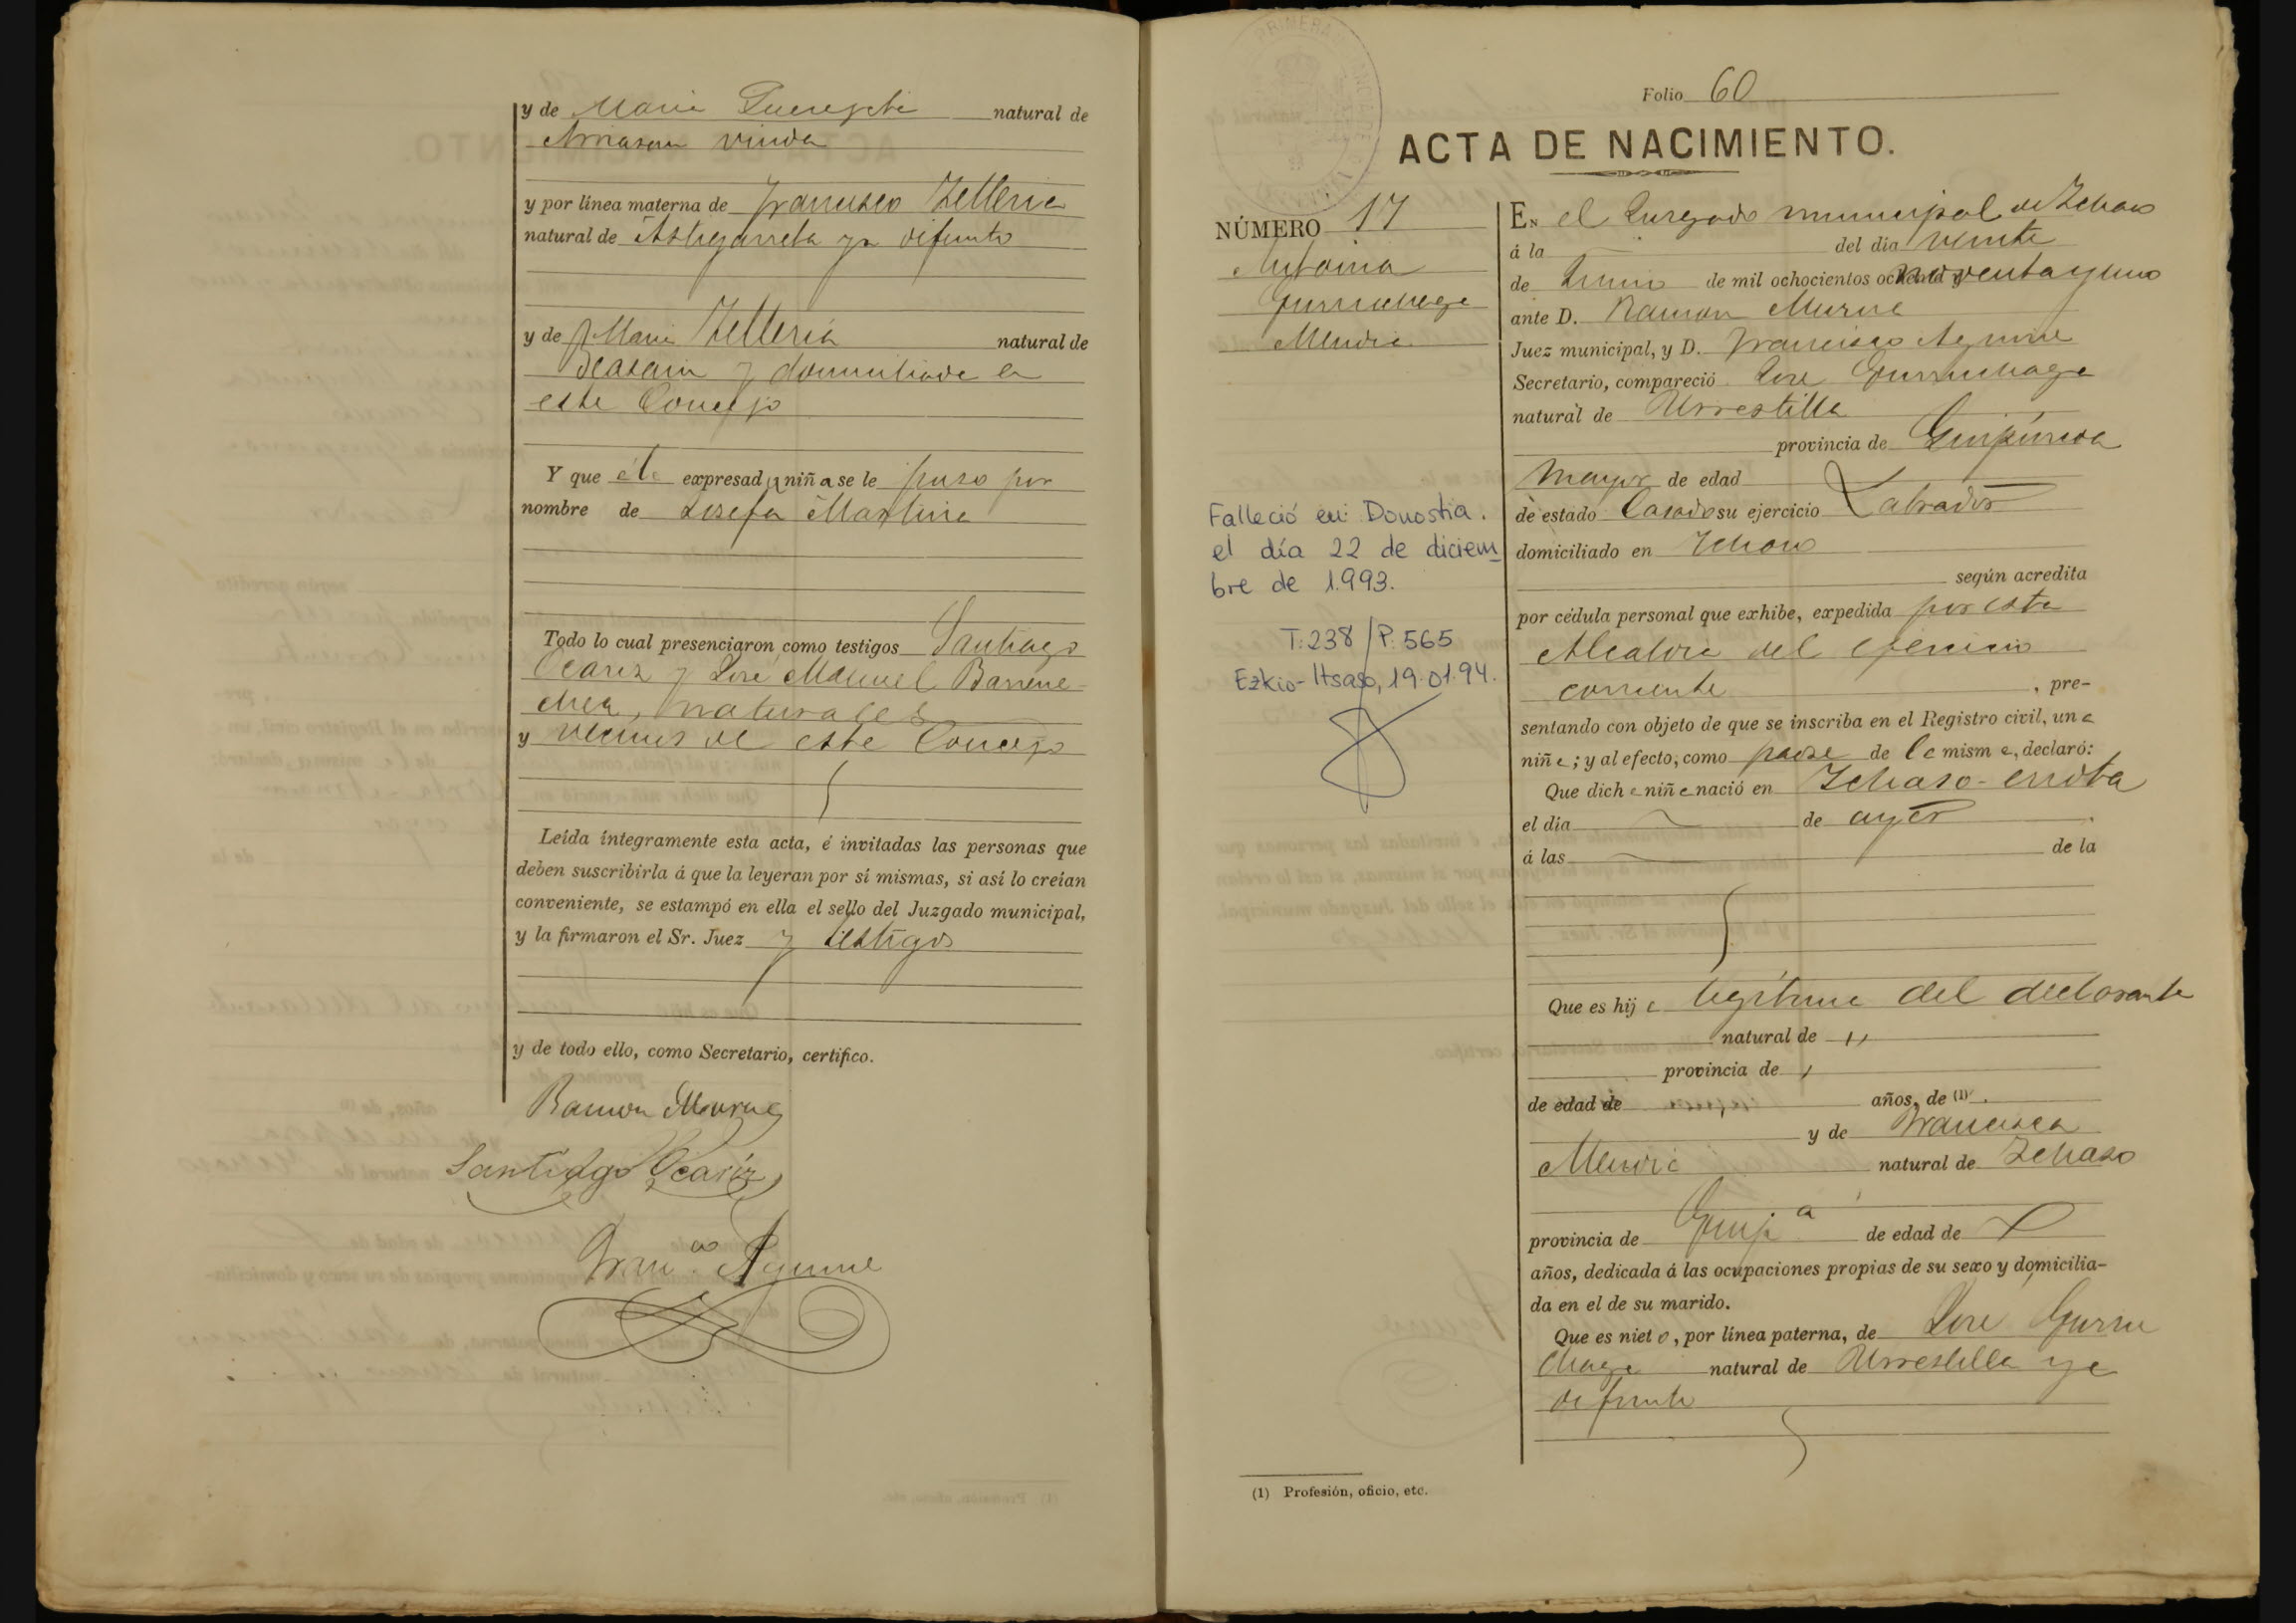 y de Maria Querejeta natural de
Arriaran viuda
y por línea materna de Francisco Telleria
natural de Astigarreta ya difunto
y de Maria Telleria natural de
Beasain y domiciliada en
este Concejo
Y que á la expresada niña se le puso por
nombre de Josefa Martina
Todo lo cual presenciaron como testigos Santiago
Ocariz y José Manuel Barrene-
chea, naturales
y vecinos de este Concejo
Leída íntegramente esta acta, é invitadas las personas que
deben suscribirla á que la leyeran por sí mismas, si así lo creían
conveniente, se estampó en ella el sello del Juzgado municipal,
y la firmaron el Sr. Juez y testigos
y de todo ello, como Secretario, certifico.
Ramon Murua
Santidgo Ocariz
Franco. Aguirre
Folio 60
ACTA DE NACIMIENTO.
NÚMERO 17
Antonia
Gurruchaga
Mendia
Falleció en Donostia.
el día 22 de diciem
bre de 1.993.
T:238 / P:565
Ezkio-Itsaso, 19.01.94.
En el Juzgado municipal de Ichaso
á la del dia veinte
de Junio de mil ochocientos noventa y uno
ante D. Ramon Murua
Juez municipal, y D. Francisco Aguirre
Secretario, compareció José Gurruchaga
natural de Urrestilla
provincia de Guipúzcoa
mayor de edad
de estado Casado su ejercicio Labrador
domiciliado en Ichaso
según acredita
por cédula personal que exhibe, expedida por esta
Alcaldia del ejercicio
corriente, pre-
sentando con objeto de que se inscriba en el Registro civil, una
niña; y al efecto, como padre de la misma, declaró:
Que dicha niña nació en Ichaso-erriba
el día de ayer
á las de la
Que es hija legitima del declarante
natural de "
provincia de "
de edad de años, de (1)
y de Francisca
Mendia natural de Ichaso
provincia de Guipa de edad de
años, dedicada á las ocupaciones propias de su sexo y domicilia-
da en el de su marido.
Que es nieto, por línea paterna, de José Gurru
chaga natural de Urrestilla ya
difunto
(1) Profesión, oficio, etc.